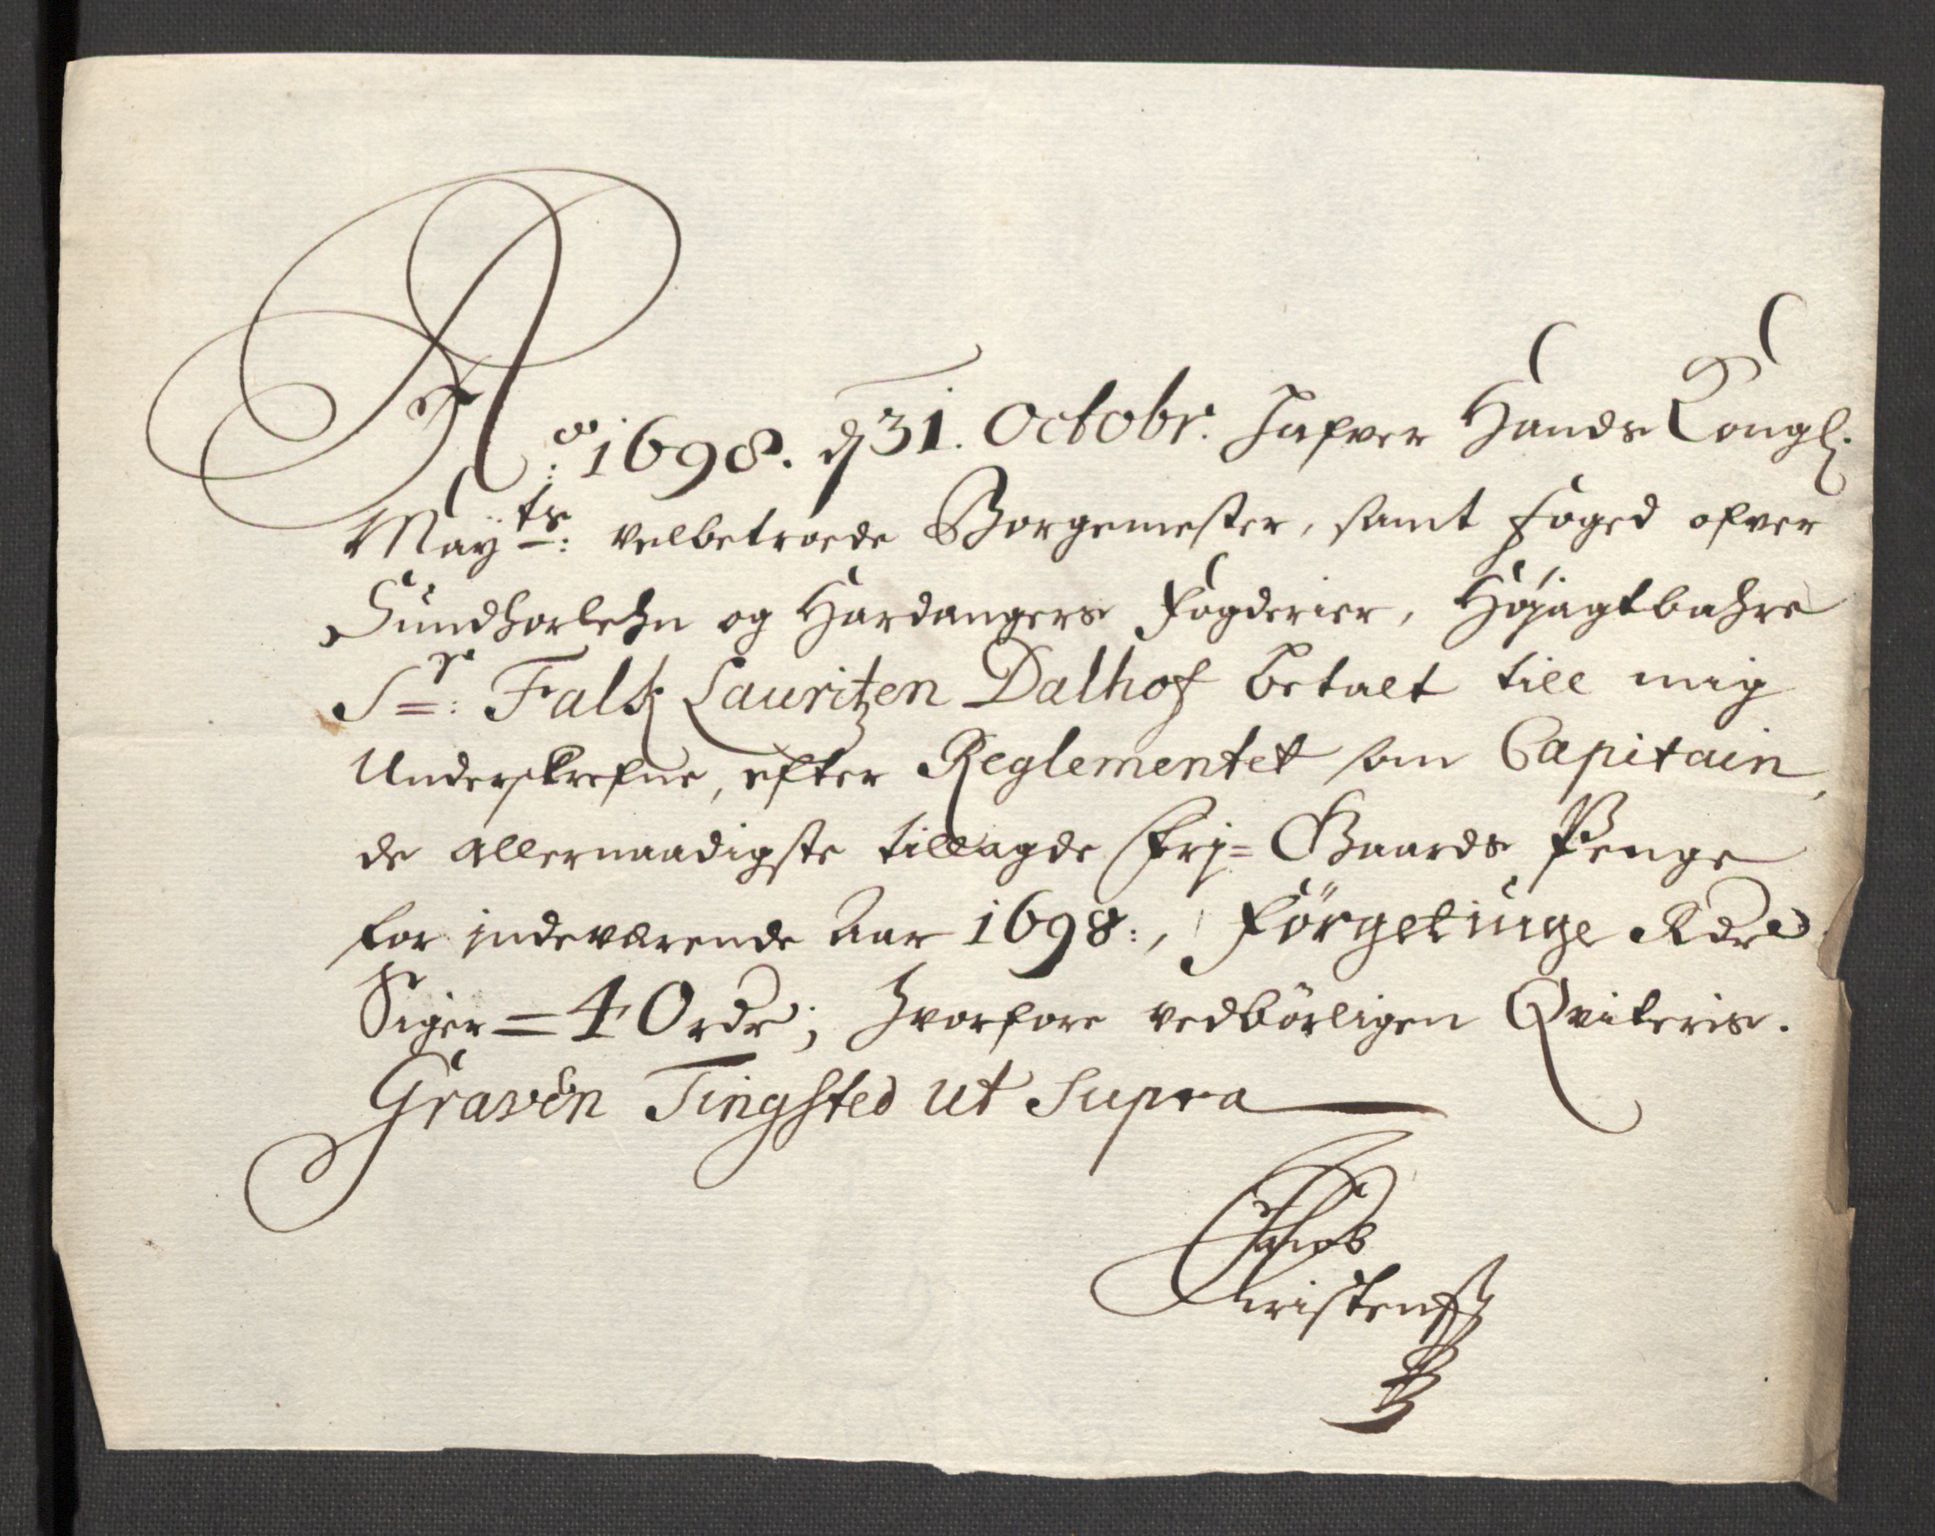 Ao: 1698. d 31. Octobr. Hafver Hands Kongl.
Mayts: velbetroede Borgemester, samt Foged ofver
Sundhorlehn og Hardangers Fogderier, Höjagtbahre
Sr: Falk Lauritzen Dalhof betalt till mig
Underskrefne, efter Reglementet som Capitain,
de allernaadigste tillagde Frj= Gaards Penge
for indeværende Aar 1698:, Förgetiuge Rdr
Siger = 40 rdr; hvorfore vedbörligen Qviteris.
Graven Tingsted ut Supra
Jacob
Christenss